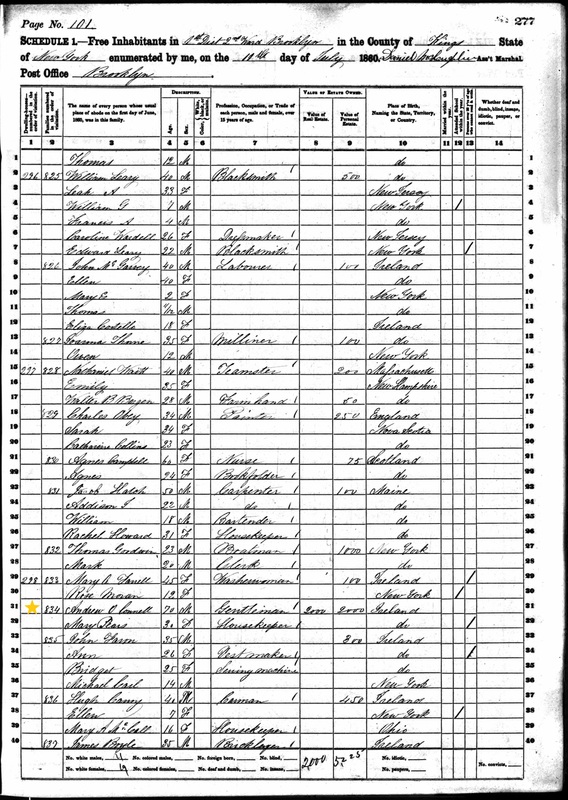 Page No. 101
277
SCHEDULE 1.—Free Inhabitants in 1st Dist 2nd Ward Brooklyn in the County of Kings State
of New York enumerated by me, on the day of July 1860. Daniel McLaughlin Ass't Marshal.
Post Office Brooklyn
Dwelling-houses—numbered in the order of visitation.
Families numbered in the order of visitation.
The name of every person whose usual place of abode on the first day of June, 1860, was in this family.
DESCRIPTION.
Age.
Sex.
Color,
Profession, Occupation, or Trade of each person, male and female, over 15 years of age.
VALUE OF ESTATE OWNED.
Value of Real Estate.
Value of Personal Estate.
Place of Birth, Naming the State, Territory, or Country.
Married within the year.
Attended School within the year.
Whether deaf and dumb, blind, insane, idiotic, pauper, or convict.
1 2 3 4 5 6 7 8 9 10 11 12 13 14
1 Thomas 12 M do 1
2 296 825 William Leary 40 M Blacksmith 500 do 2
3 Leah A 33 F New Jersey 3
4 William 7 M New York / 4
5 Francis A 4 M do 5
6 Caroline Wardell 26 F Dressmaker New Jersey 6
7 Edward Leary 22 M Blacksmith New York / 7
8 826 John McGarvey 40 M Laborer 100 Ireland 8
9 Ellen 40 F do 9
10 Mary E 2 F New York 10
11 Thomas M do 11
12 Eliza Costello 18 F Ireland 12
13 827 Thorne 35 F Milliner 100 do 13
14 12 M New York 14
15 297 828 Nathaniel 40 M Teamster 200 Massachusetts 15
16 Emily 25 F New Hampshire 16
17 B Bergen 28 M Farm hand 50 do 17
18 829 Charles 34 M Painter 250 England 18
19 Sarah 24 F Nova Scotia 19
20 Catharine Collins 23 F do 20
21 830 Agnes Campbell 60 F Nurse 75 Scotland 21
22 Agnes 24 F Bookfolder do 22
23 831 Jacob Hatch 50 M Carpenter 100 Maine 23
24 Addison 22 M do do 24
25 William 18 M Bartender do 25
26 Rachel Howard 31 F Housekeeper do 26
27 832 Thomas Goodwin 23 M 1000 New York 27
28 Mark 20 M Clerk do 28
29 298 833 Mary A Farrell 45 F Washerwoman 100 Ireland / 29
30 Rose Moran 12 F New York / 30
31 834 Andrew O Connell 70 M Gentleman 2000 2000 Ireland 31
32 Mary 30 F Housekeeper do / 32
33 835 John 35 M 300 Ireland 33
34 Ann 26 F Vest maker do / 34
35 Bridget 25 F Sewing machine do 35
36 Michael 14 M New York 36
37 836 Hugh Carey 40 M Carman 450 Ireland 37
38 Ellen 7 F New York / 38
39 Mary A McCall 16 F Housekeeper Ohio 39
40 837 James Boyle 35 M Bricklayer Ireland 40
No. white males, No. colored males, No. foreign born, No. blind, 2,000 5225 No. idiotic, No. convicts,
No. white females, 19 No. colored females, No. deaf and dumb, No. insane, No. paupers,